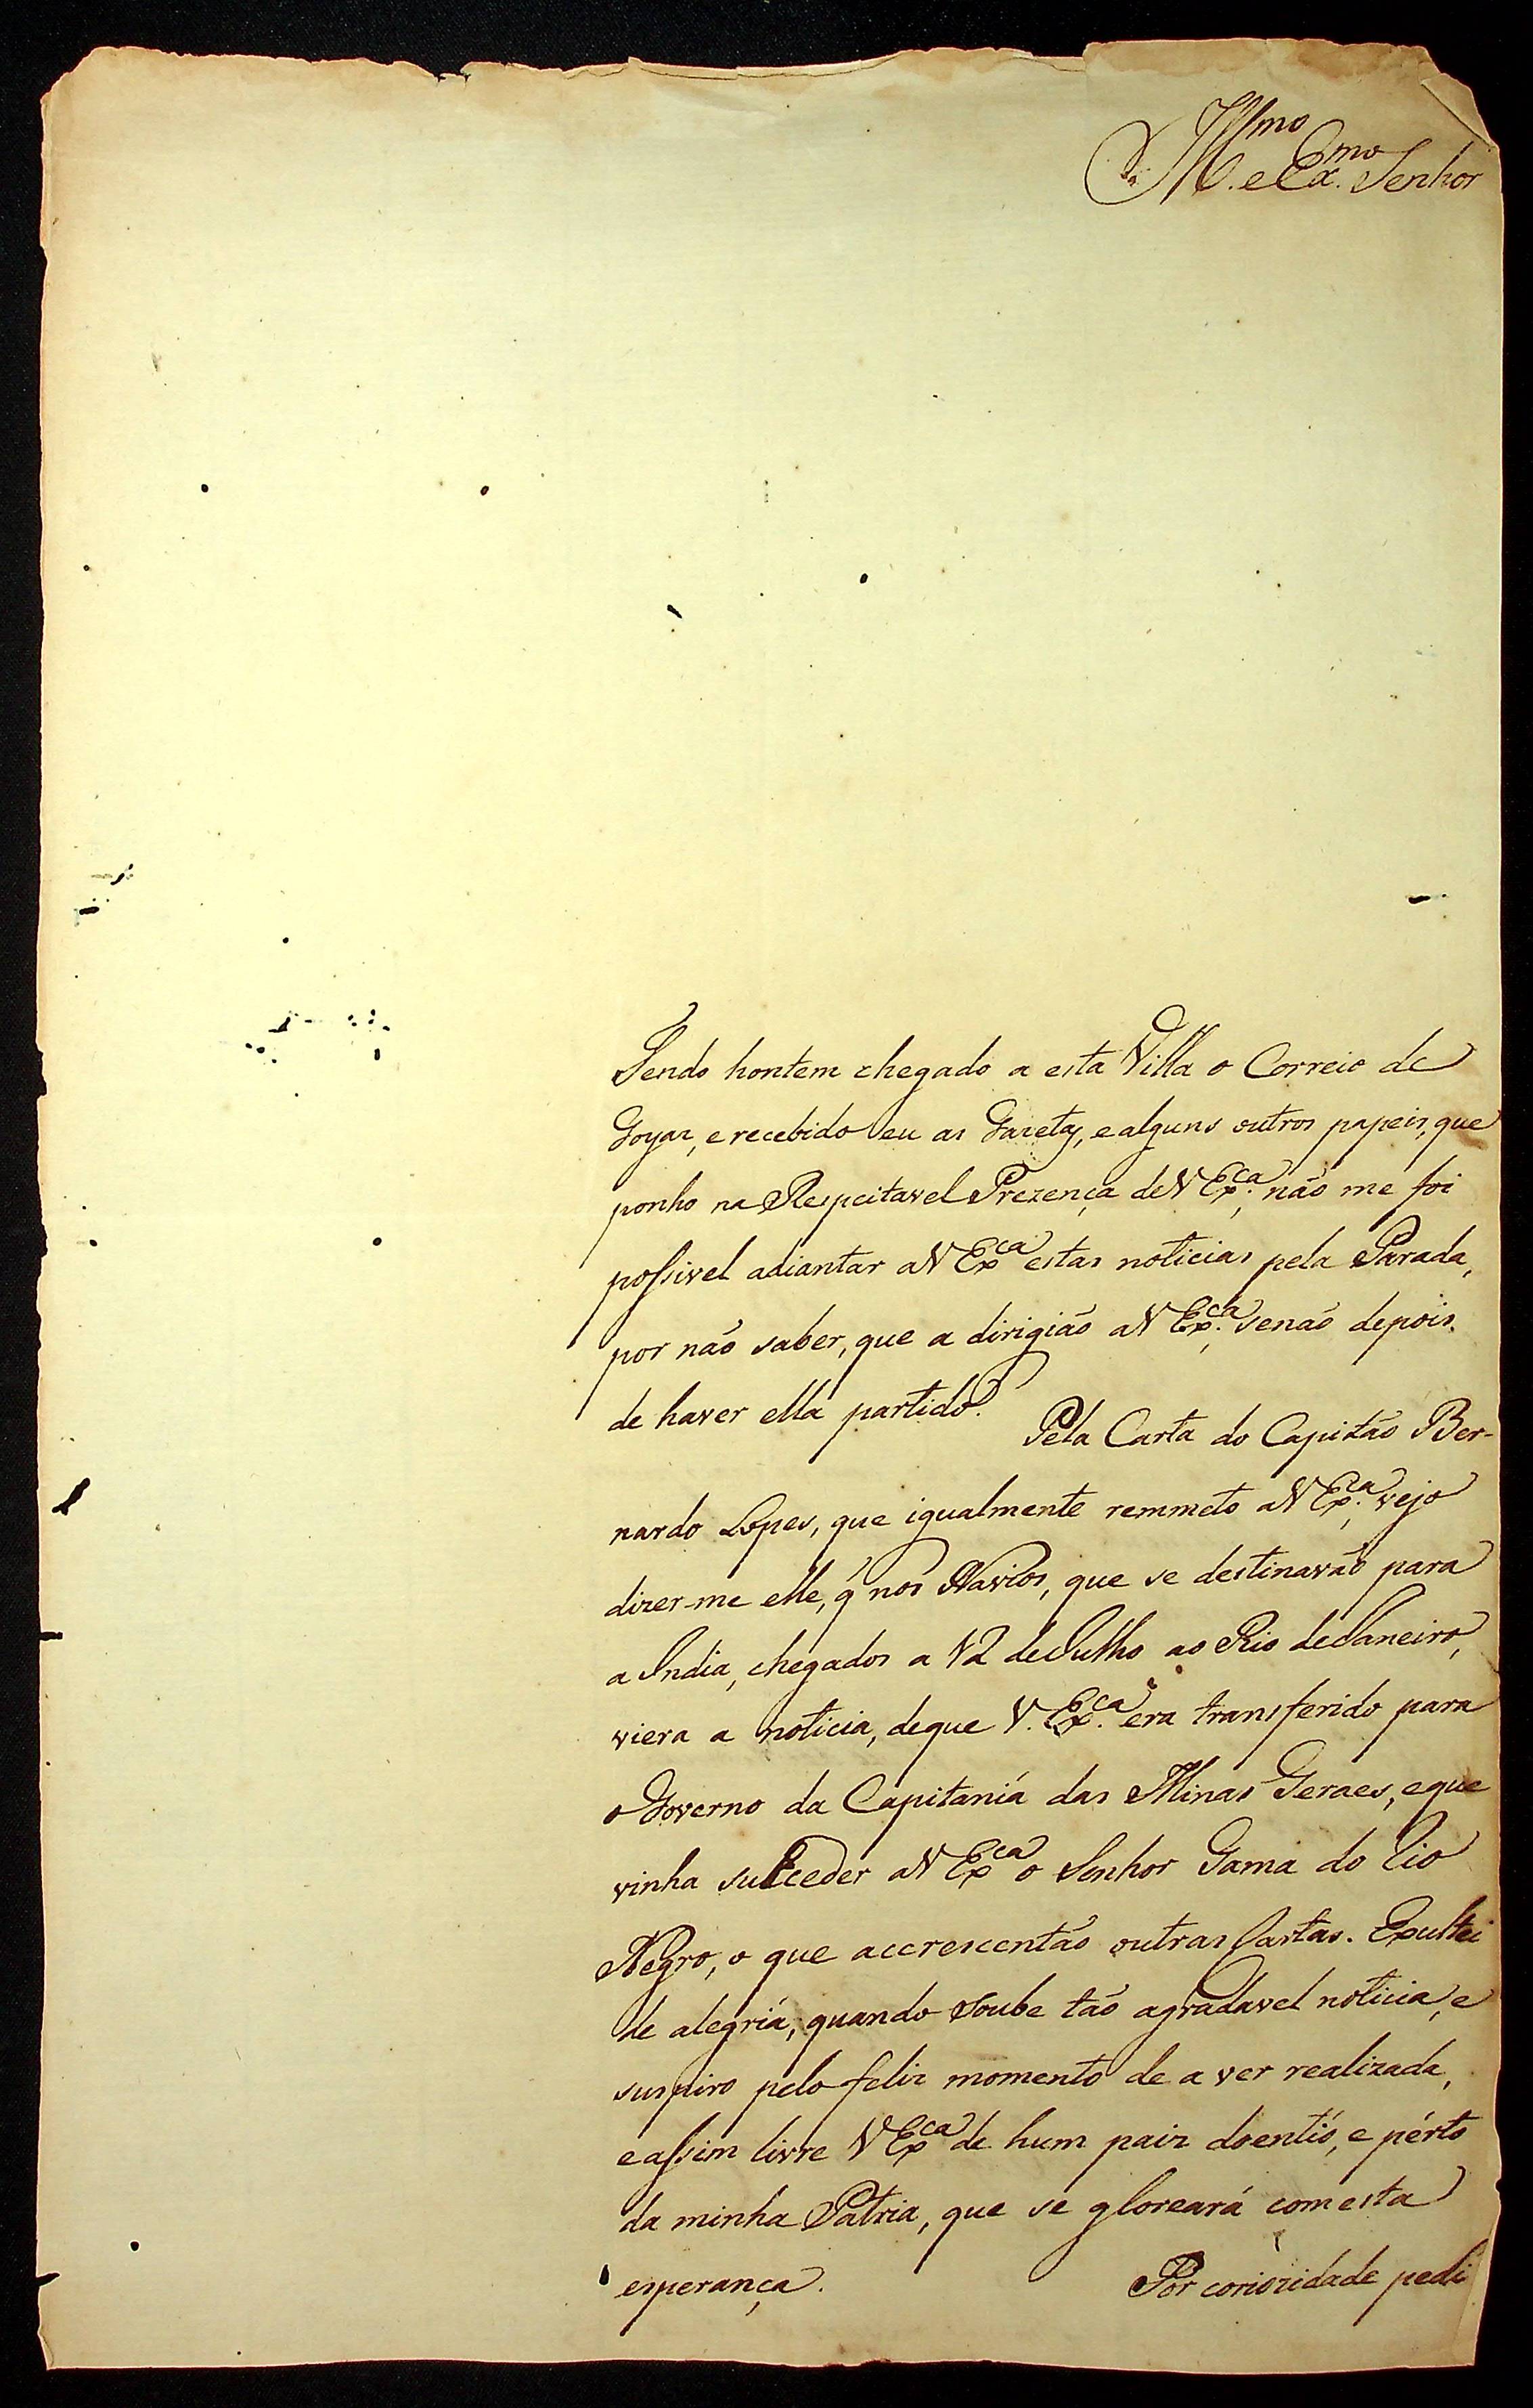 Ill.mo e Ex.mo Senhor
Sendo hontem chegado a esta Villa o Correio de
Goyaz, e recebido eu as Gazetas, e alguns outros papeis, que
ponho na Respeitavel Prezença de V Ex.ca, não me foi
possivel adiantar a V Exca estas noticias pela Parada,
por não saber, que a dirigião a V Ex.ca, senão depois
de haver ella partido. Pela Carta do Capitão Ber-
nardo Lopes, que igualmente remmeto a V Ex.ca, vejo
dizer-me elle, q̃ nos Navios, que se destinavão para
a India, chegados a 12 de Julho ao Rio de Janeiro,
viera a noticia, de que V. Ex.ca era transferido para
o Governo da Capitanía das Minas Geraes, e que
vinha succeder a V Exca o Senhor Gama do Rio
Negro, o que accrescentão outras Cartas. Exultei
de alegría, quando soube tão agradavel noticia, e
suspiro pelo feliz momento de a ver realizada,
e assim livre V Exca de hum paiz doentió, e pérto
da minha Patria, que se gloreará com esta
esperança. Por coriozidade pedi